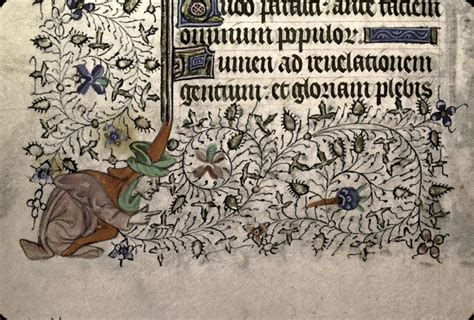 Quod parasti: ante faciem
omnium populor.
Lumen ad reuelationem
gentium: et gloriam plebis